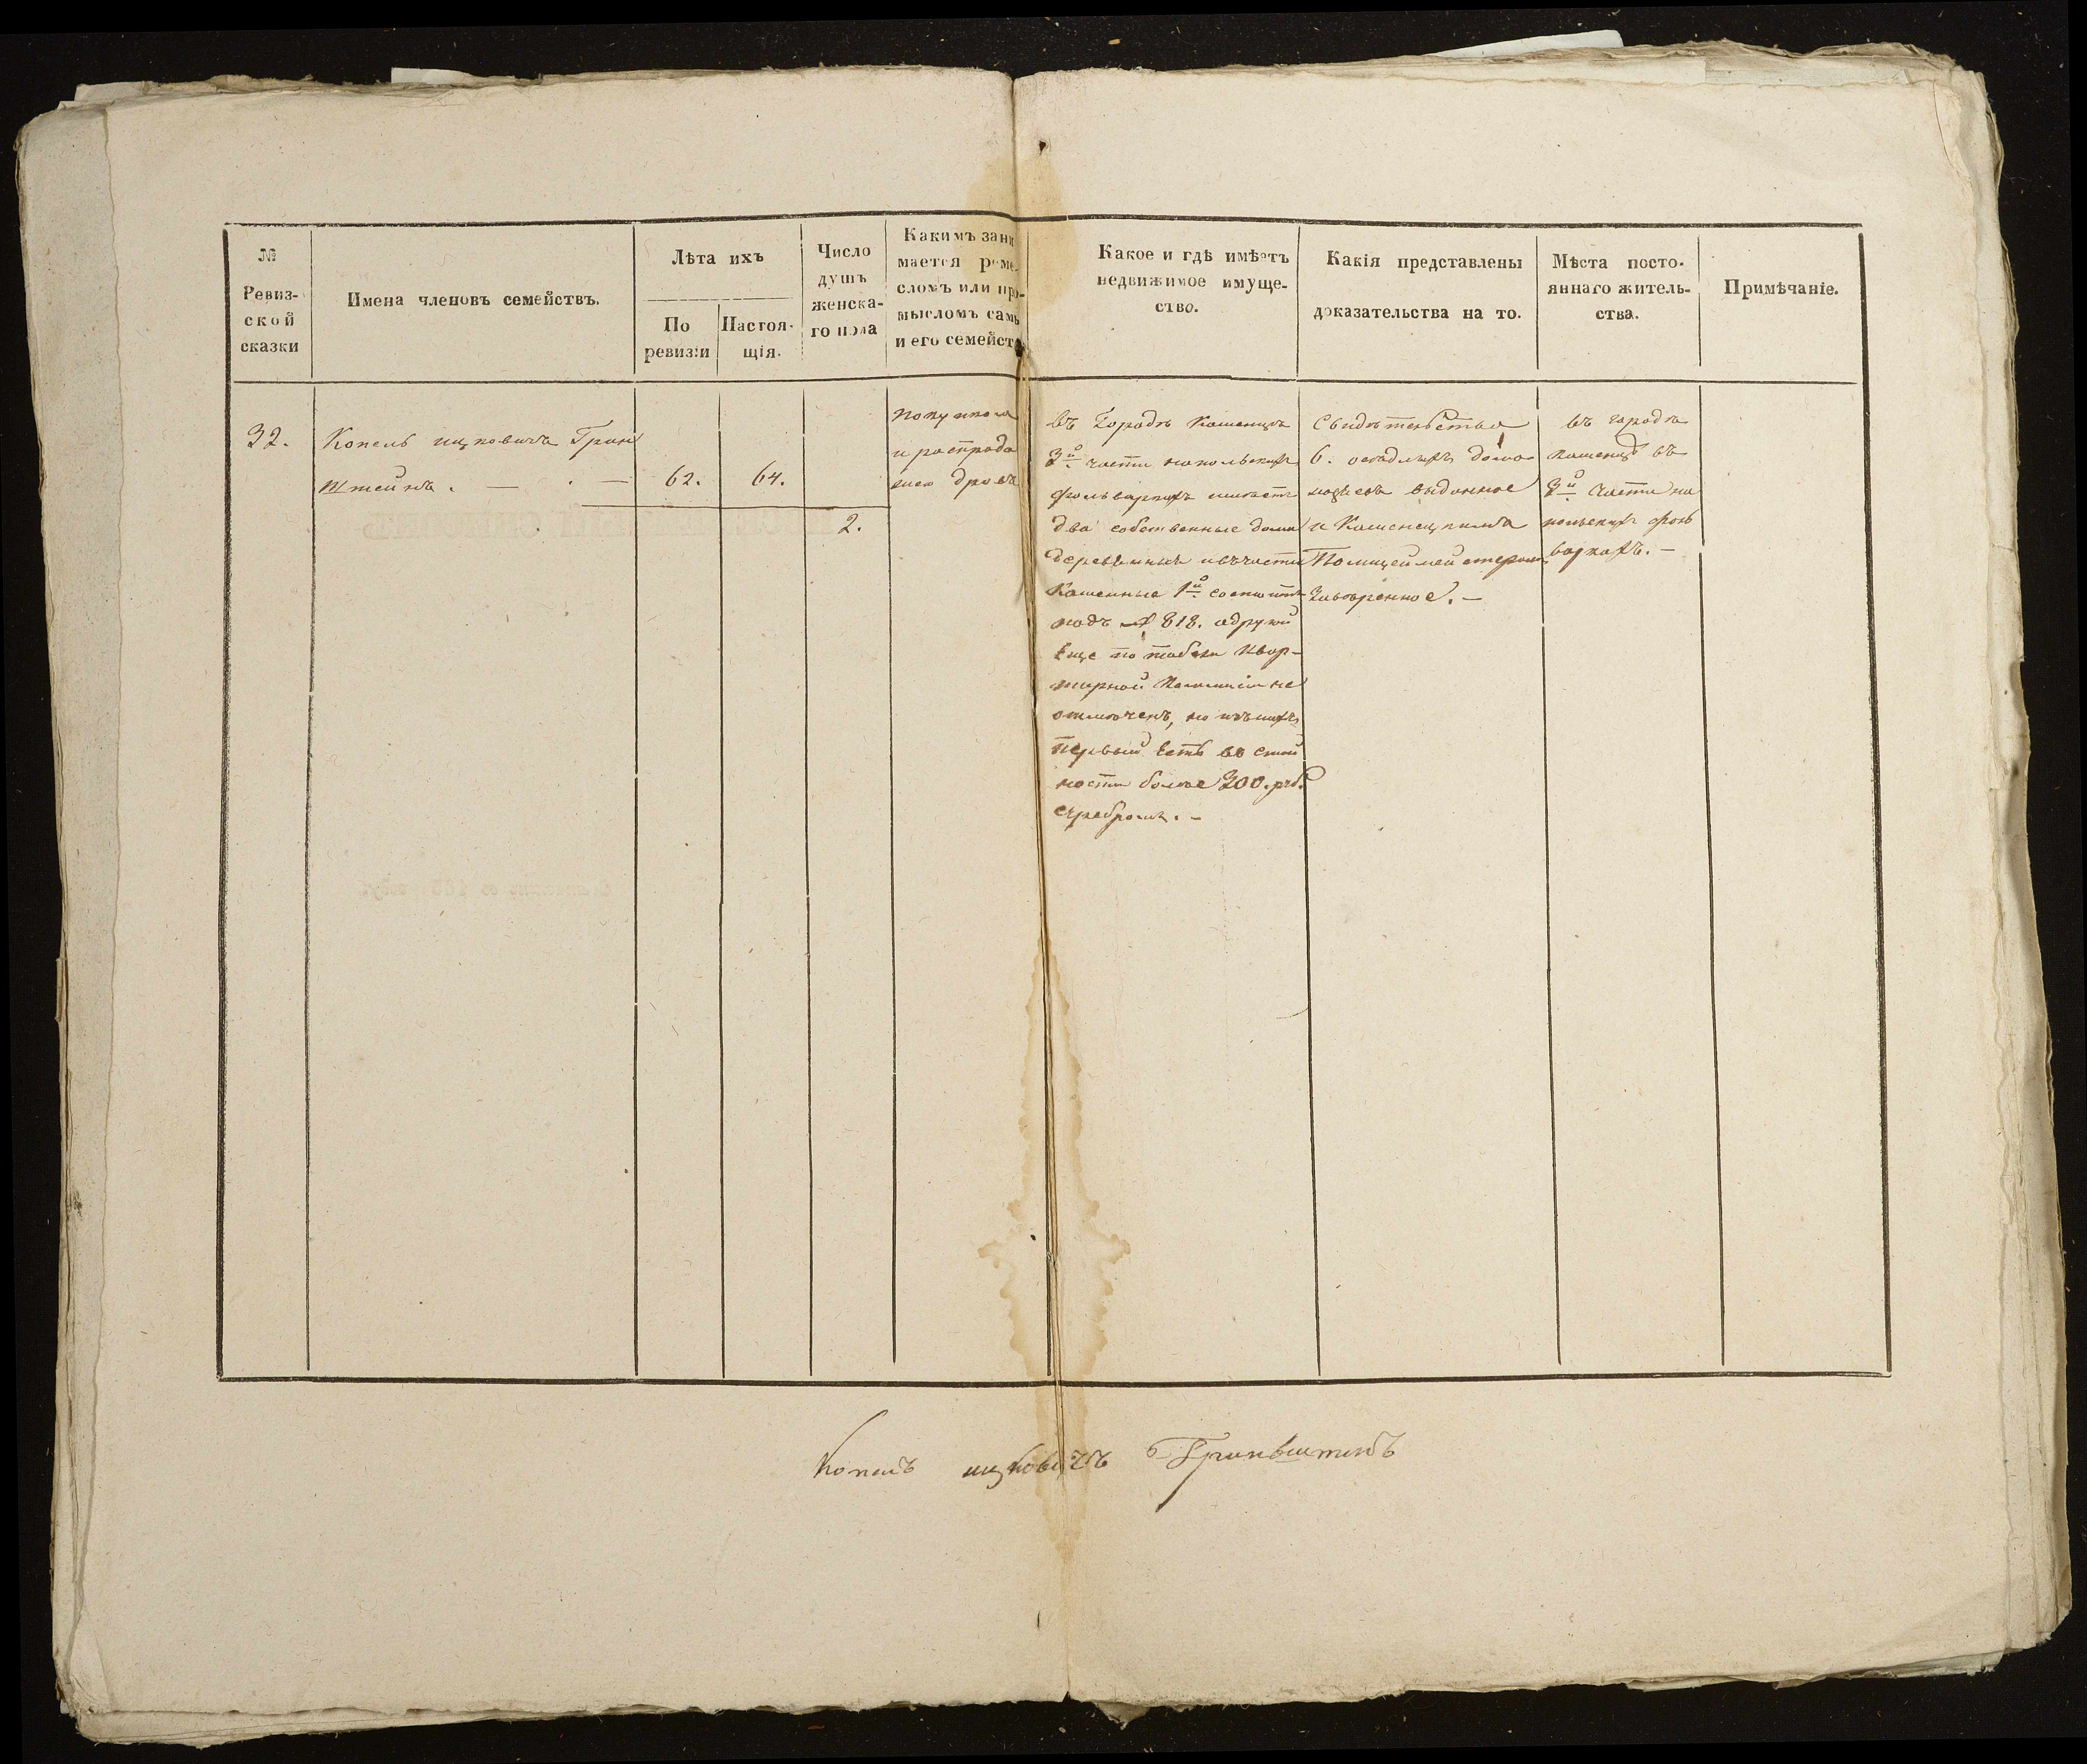 №
Ревиз-
ской
сказки
Имена членовъ семействъ.
Лѣта ихъ
По
ревизіи
Настоя-
щія.
Число
душъ
женска-
го пола
Какимъ зани
мается реме-
сломъ или про-
мысломъ самъ
и его семейст
Какое и гдѣ имѣетъ
недвижимое имуще-
ство.
Какія представлены
доказательства на то.
Мѣста посто-
яннаго житель-
ства.
Примѣчаніе.
32.
Копель ицковичъ Грин
штейнъ. — . —
62.
64.
2.
покупкою
и распрода
жею дровъ
въ Городѣ Каменцѣ
3й части на польскихъ
фольваркахъ имѣетъ
два собственные дома
деревянные и въ части
Каменные 1й состоитъ
подъ № 818. а другой
еще по табели Квар-
тирной Комисіи не
отмѣченъ, но изъ нихъ
первый есть въ стои
мости более 300. руб.
серебромъ. –
Свидѣтельство
6. осѣдлыхъ домо-
хозяевъ выданное
и Каменецкимъ
Полицеймейстеромъ
Завѣренное. –
въ городѣ
Каменцѣ въ
3й части на
польскихъ фоль
варкахъ. –
Копель ицковичъ Гринъштинъ